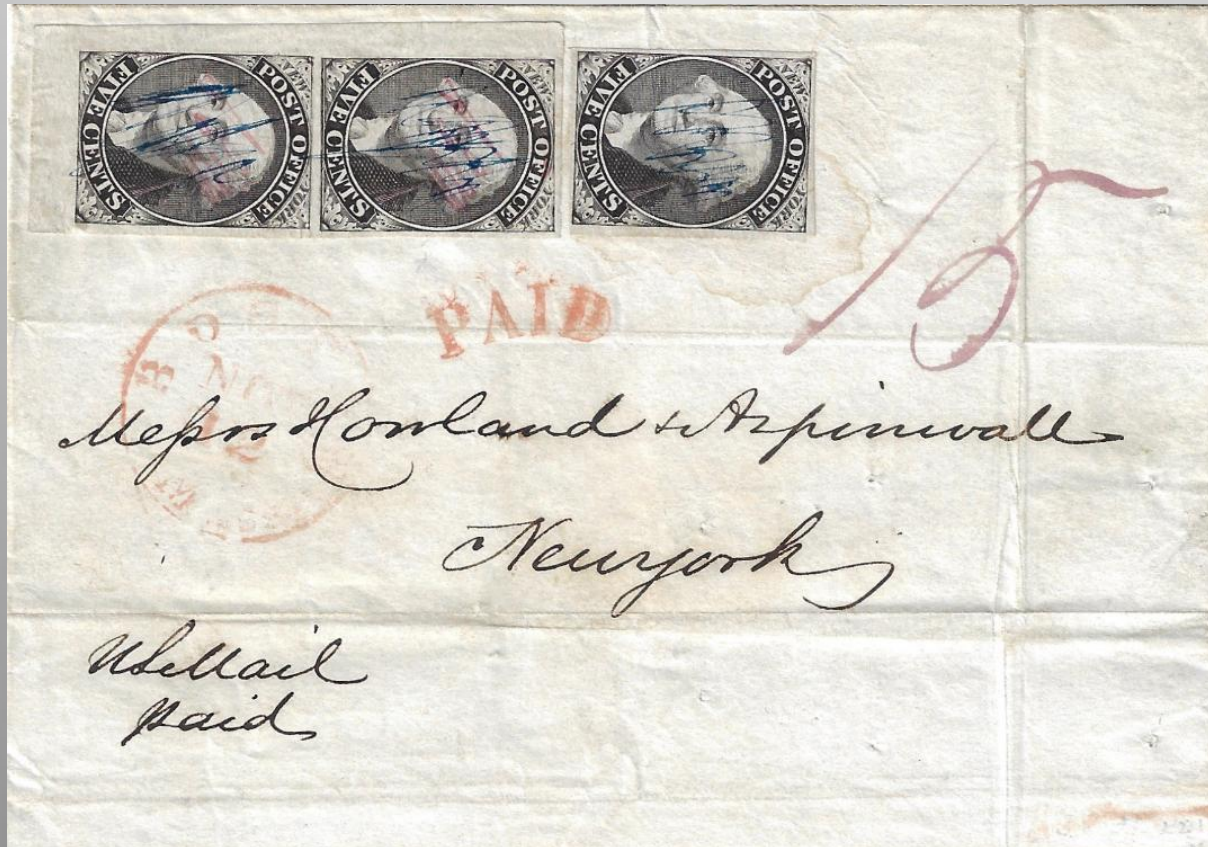 POST OFFICE
FIVE CENTS.
NEW YORK
POST OFFICE
FIVE CENTS.
NEW YORK
POST OFFICE
FIVE CENTS.
NEW YORK
15
PAID
NOV
12
Messrs Howland & Aspinwall
New york
US Mail
paid